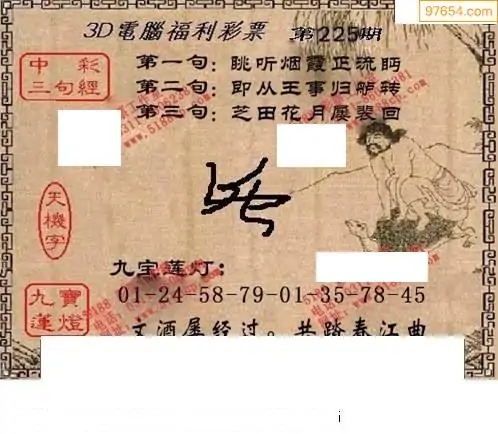 97654.com
3D電腦福利彩票 第225期
中彩
三句經
第一句：眺听烟霞正流眄
第二句：即从王事归舻转
第三句：芝田花月屡裴回
天機字
九宝莲灯：
九寶蓮燈
01-24-58-79-01-35-78-45
文酒屡经过。共踏春江曲